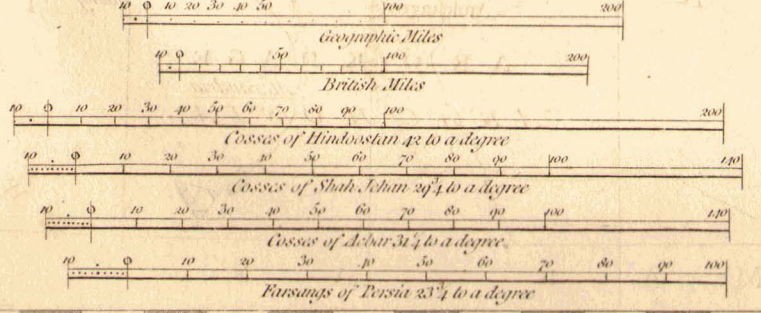 10 0 10 20 30 40 50 100 200
Geographic Miles
10 0 50 100 200
British Miles
10 0 10 20 30 40 50 60 70 80 90 100 200
Cosses of Hindoostan 42 to a degree
10 0 10 20 30 40 50 60 70 80 90 100 140
Cosses of Shah Jehan 29 3/4 to a degree
10 0 10 20 30 40 50 60 70 80 90 100 140
Cosses of Acbar 31 1/4 to a degree
10 0 10 20 30 40 50 60 70 80 90 100
Farsangs of Persia 23 3/4 to a degree